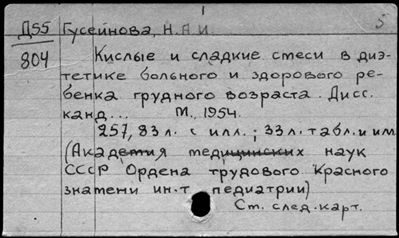 Д55 Гусейнова, Н.А.И. 5
804 Кислые и сладкие смеси в диэ-
тетике больного и здорового ре-
бенка грудного возраста. Дисс.
канд... М., 1954.
257, 83л. с илл.; 33л. табл. и илл.
(Академия медицинских наук
СССР Ордена трудового Красного
знамени ин-т педиатрии)
Ст. след. карт.